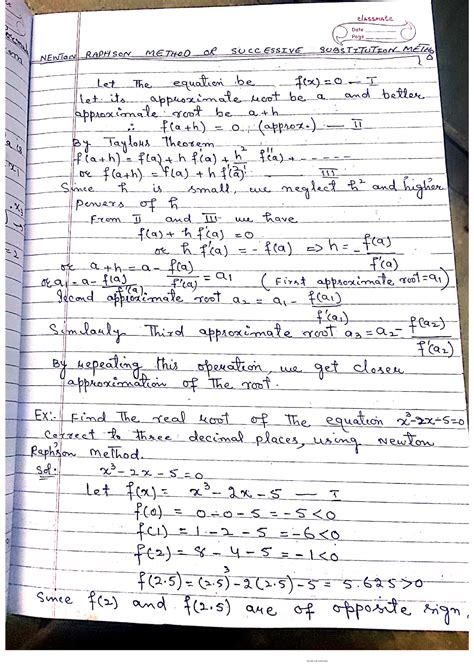 classmate
Date
Page
NEWTON RAPHSON METHOD OR SUCCESSIVE SUBSTITUTION METHOD
Let The equation be f(x)=0 — I
Let its approximate root be a and better
approximate root be a+h
∴ f(a+h) = 0 (approx.) — II
By Taylors Theorem
f(a+h) = f(a) + h f'(a) + h²/2 f''(a) + - - - - -
or f(a+h) = f(a) + h f'(a) III
Since h is small, we neglect h² and higher
powers of h
From II and III we have
f(a) + h f'(a) = 0
or h f'(a) = - f(a) => h = - f(a)/f'(a)
or a+h = a - f(a)/f'(a) = a₁ (First approximate root = a₁)
or a₁ = a - f(a)/f'(a).
Second approximate root a₂ = a₁ - f(a₁)/f'(a₁)
Similarly Third approximate root a₃ = a₂ - f(a₂)/f'(a₂)
By repeating this operation, we get closer
approximation of The root.
Ex:- Find The real root of the equation x³-2x-5=0
correct to three decimal places, using Newton
Raphson Method.
Sol: x³-2x-5=0
Let f(x) = x³-2x-5 — I
f(0) = 0-0-5 = -5<0
f(1) = 1-2-5 = -6<0
f(2) = 8-4-5 = -1<0
f(2.5) = (2.5)³-2(2.5)-5 = 5.625>0
Since f(2) and f(2.5) are of opposite sign,